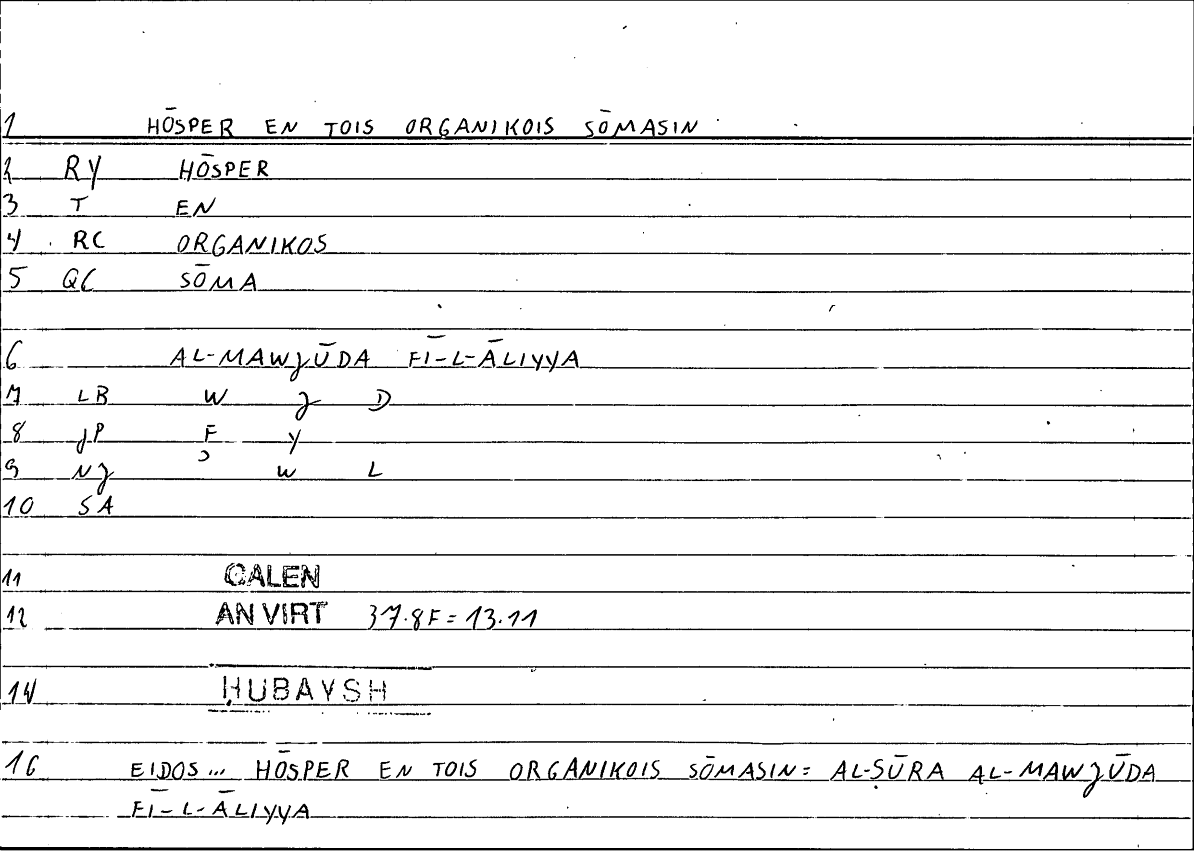 1 HŌSPER EN TOIS ORGANIKOIS SŌMASIN
2 RY HŌSPER
3 T EN
4 RC ORGANIKOS
5 QC SŌMA
6 AL-MAWJŪDA FĪ-L-ĀLIYYA
7 LB W J D
8 JP F Y
9 NJ ʾ W L
10 SA
11 GALEN
12 AN VIRT 37.8F=13.11
14 ḤUBAYSH
16 EIDOS... HŌSPER EN TOIS ORGANIKOIS SŌMASIN= AL-ṢŪRA AL-MAWJŪDA
FĪ-L-ĀLIYYA